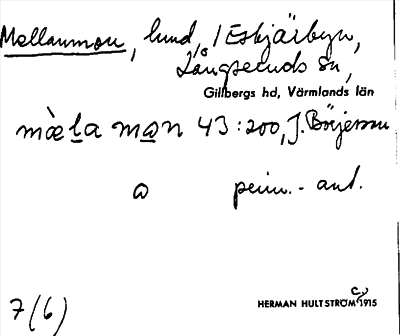 Mellanmon, lund, i Eskjärbyn,
Långseruds sn,
Gillbergs hd, Värmlands län
mæ̀la mon 43:200, J. Börjesson
a
7(6)
HERMAN HULTSTRÖM 1915